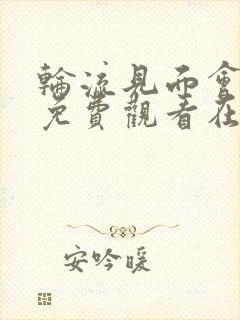 輪流見面會
免費觀看在
安吟暖